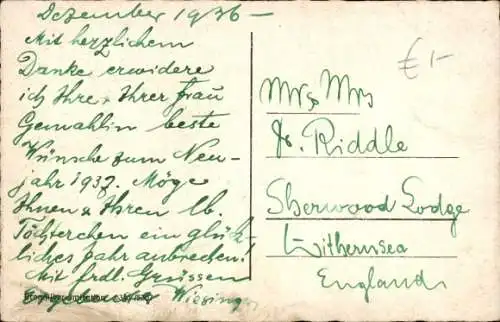 Dezember 1936 –
Mit herzlichem
Danke erwidere
ich Ihre u. Ihrer Frau
Gemahlin beste
Wünsche zum Neu-
jahr 1937. Möge
Ihnen u. Ihren lb.
Töchterchen ein glück-
liches Jahr anbrechen!
Mit frdl. Grüssen
Ergebenst Wiesinger
€ 1-
Mr & Mrs
Dr. Riddle
Sherwood Lodge
Withernsea
England